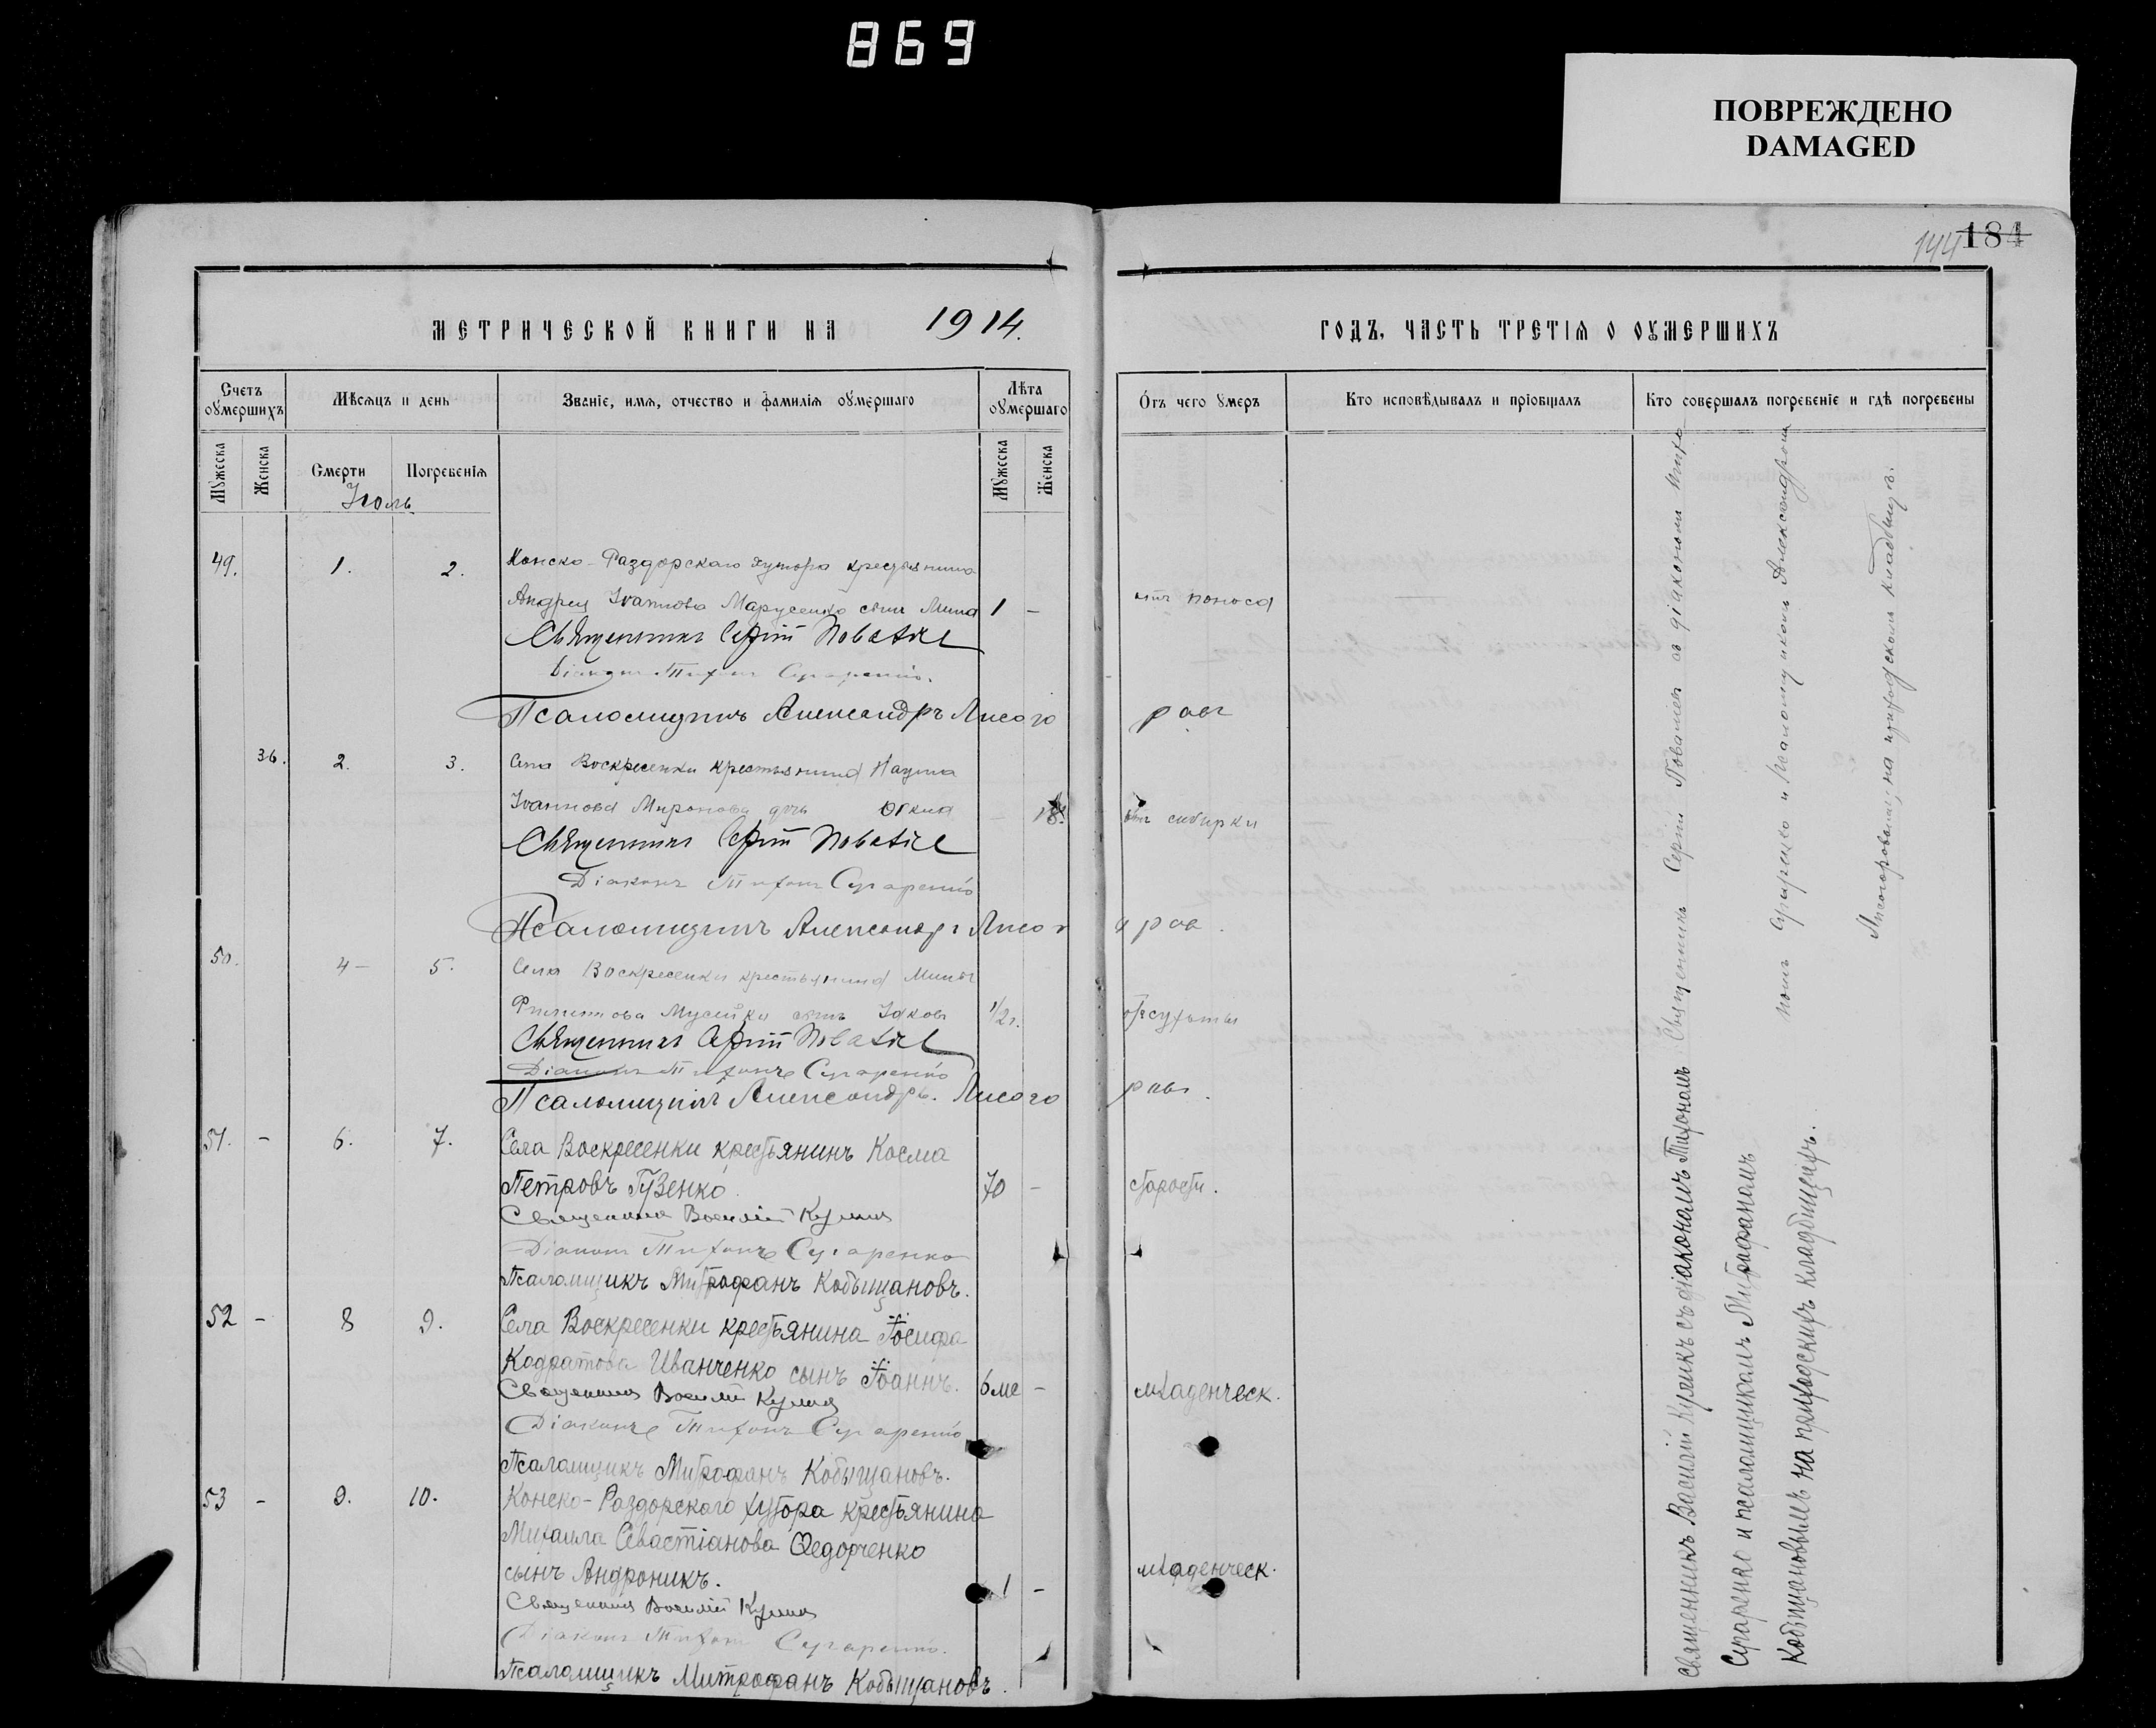 869
ПОВРЕЖДЕНО
DAMAGED
144 184
МЕТРИЧЕСКОЙ КНИГИ НА 1914.
ГОДЪ, ЧАСТЬ ТРЕТІЯ О ОУМЕРШИХЪ
Счетъ оумершихъ
Мѣсяцъ и день
Званіе, имя, отчество и фамилія оумершаго
Лѣта оумершаго
Отъ чего умеръ
Кто исповѣдывалъ и пріобщалъ
Кто совершалъ погребеніе и гдѣ погребены
Мужеска
Женска
Смерти
Погребенія
Мужеска
Женска
Іюль
49. 1. 2. Конско-Раздорскаго хутора крестьянина
Андрея Іоаннова Марусенко сынъ Мина 1 - отъ поноса
Священникъ Сергій
Діаконъ Тихонъ Сугаренко.
Псаломщикъ Александръ Лисогоровъ
36. 2. 3. Села Воскресенки крестьянина Наума
Іоаннова Миронова дочь 18. отъ сибирки
Священникъ Сергій
Діаконъ Тихонъ Сугаренко
Псаломщикъ Александръ Лисогоров.
50. 4 - 5. Села Воскресенки крестьянина Мины
Филиппова Мусійки сынъ Іаковъ 1/2 г. отъ сухоты
Священникъ Сергій
Діаконъ Тихонъ Сугаренко
Псаломщикъ Александръ. Лисогоровъ.
51. - 6. 7. Села Воскресенки крестьянинъ Косма
Петровъ Гузенко. 70 - старости.
Священникъ Василій Куликъ
Діаконъ Тихонъ Сугаренко
Псаломщикъ Митрофанъ Кобыщановъ.
52 - 8 9. Села Воскресенки крестьянина Іосифа
Кодратова Иванченко сынъ Іоаннъ. 6 ме - младенческ.
Священникъ Василій Куликъ
Діаконъ Тихонъ Сугаренко
Псаломщикъ Митрофанъ Кобыщановъ.
53 - 9. 10. Конско-Раздорского хутора крестьянина
Михаила Севастіанова Ѳедорченко
сынъ Андроникъ. 1 - младенческ.
Священникъ Василій Куликъ
Діаконъ Тихонъ Сугаренко.
Псаломщикъ Митрофанъ Кобыщановъ.
Священникъ Сергій съ діакономъ Тихо-
номъ Сугаренко и псаломщикомъ Александромъ
Лисогоровымъ, на приходскомъ кладбищѣ.
Священникъ Василій Куликъ съ діакономъ Тихономъ
Сугаренко и псаломщикомъ Митрофаномъ
Кобыщановымъ на приходскихъ кладбищахъ.